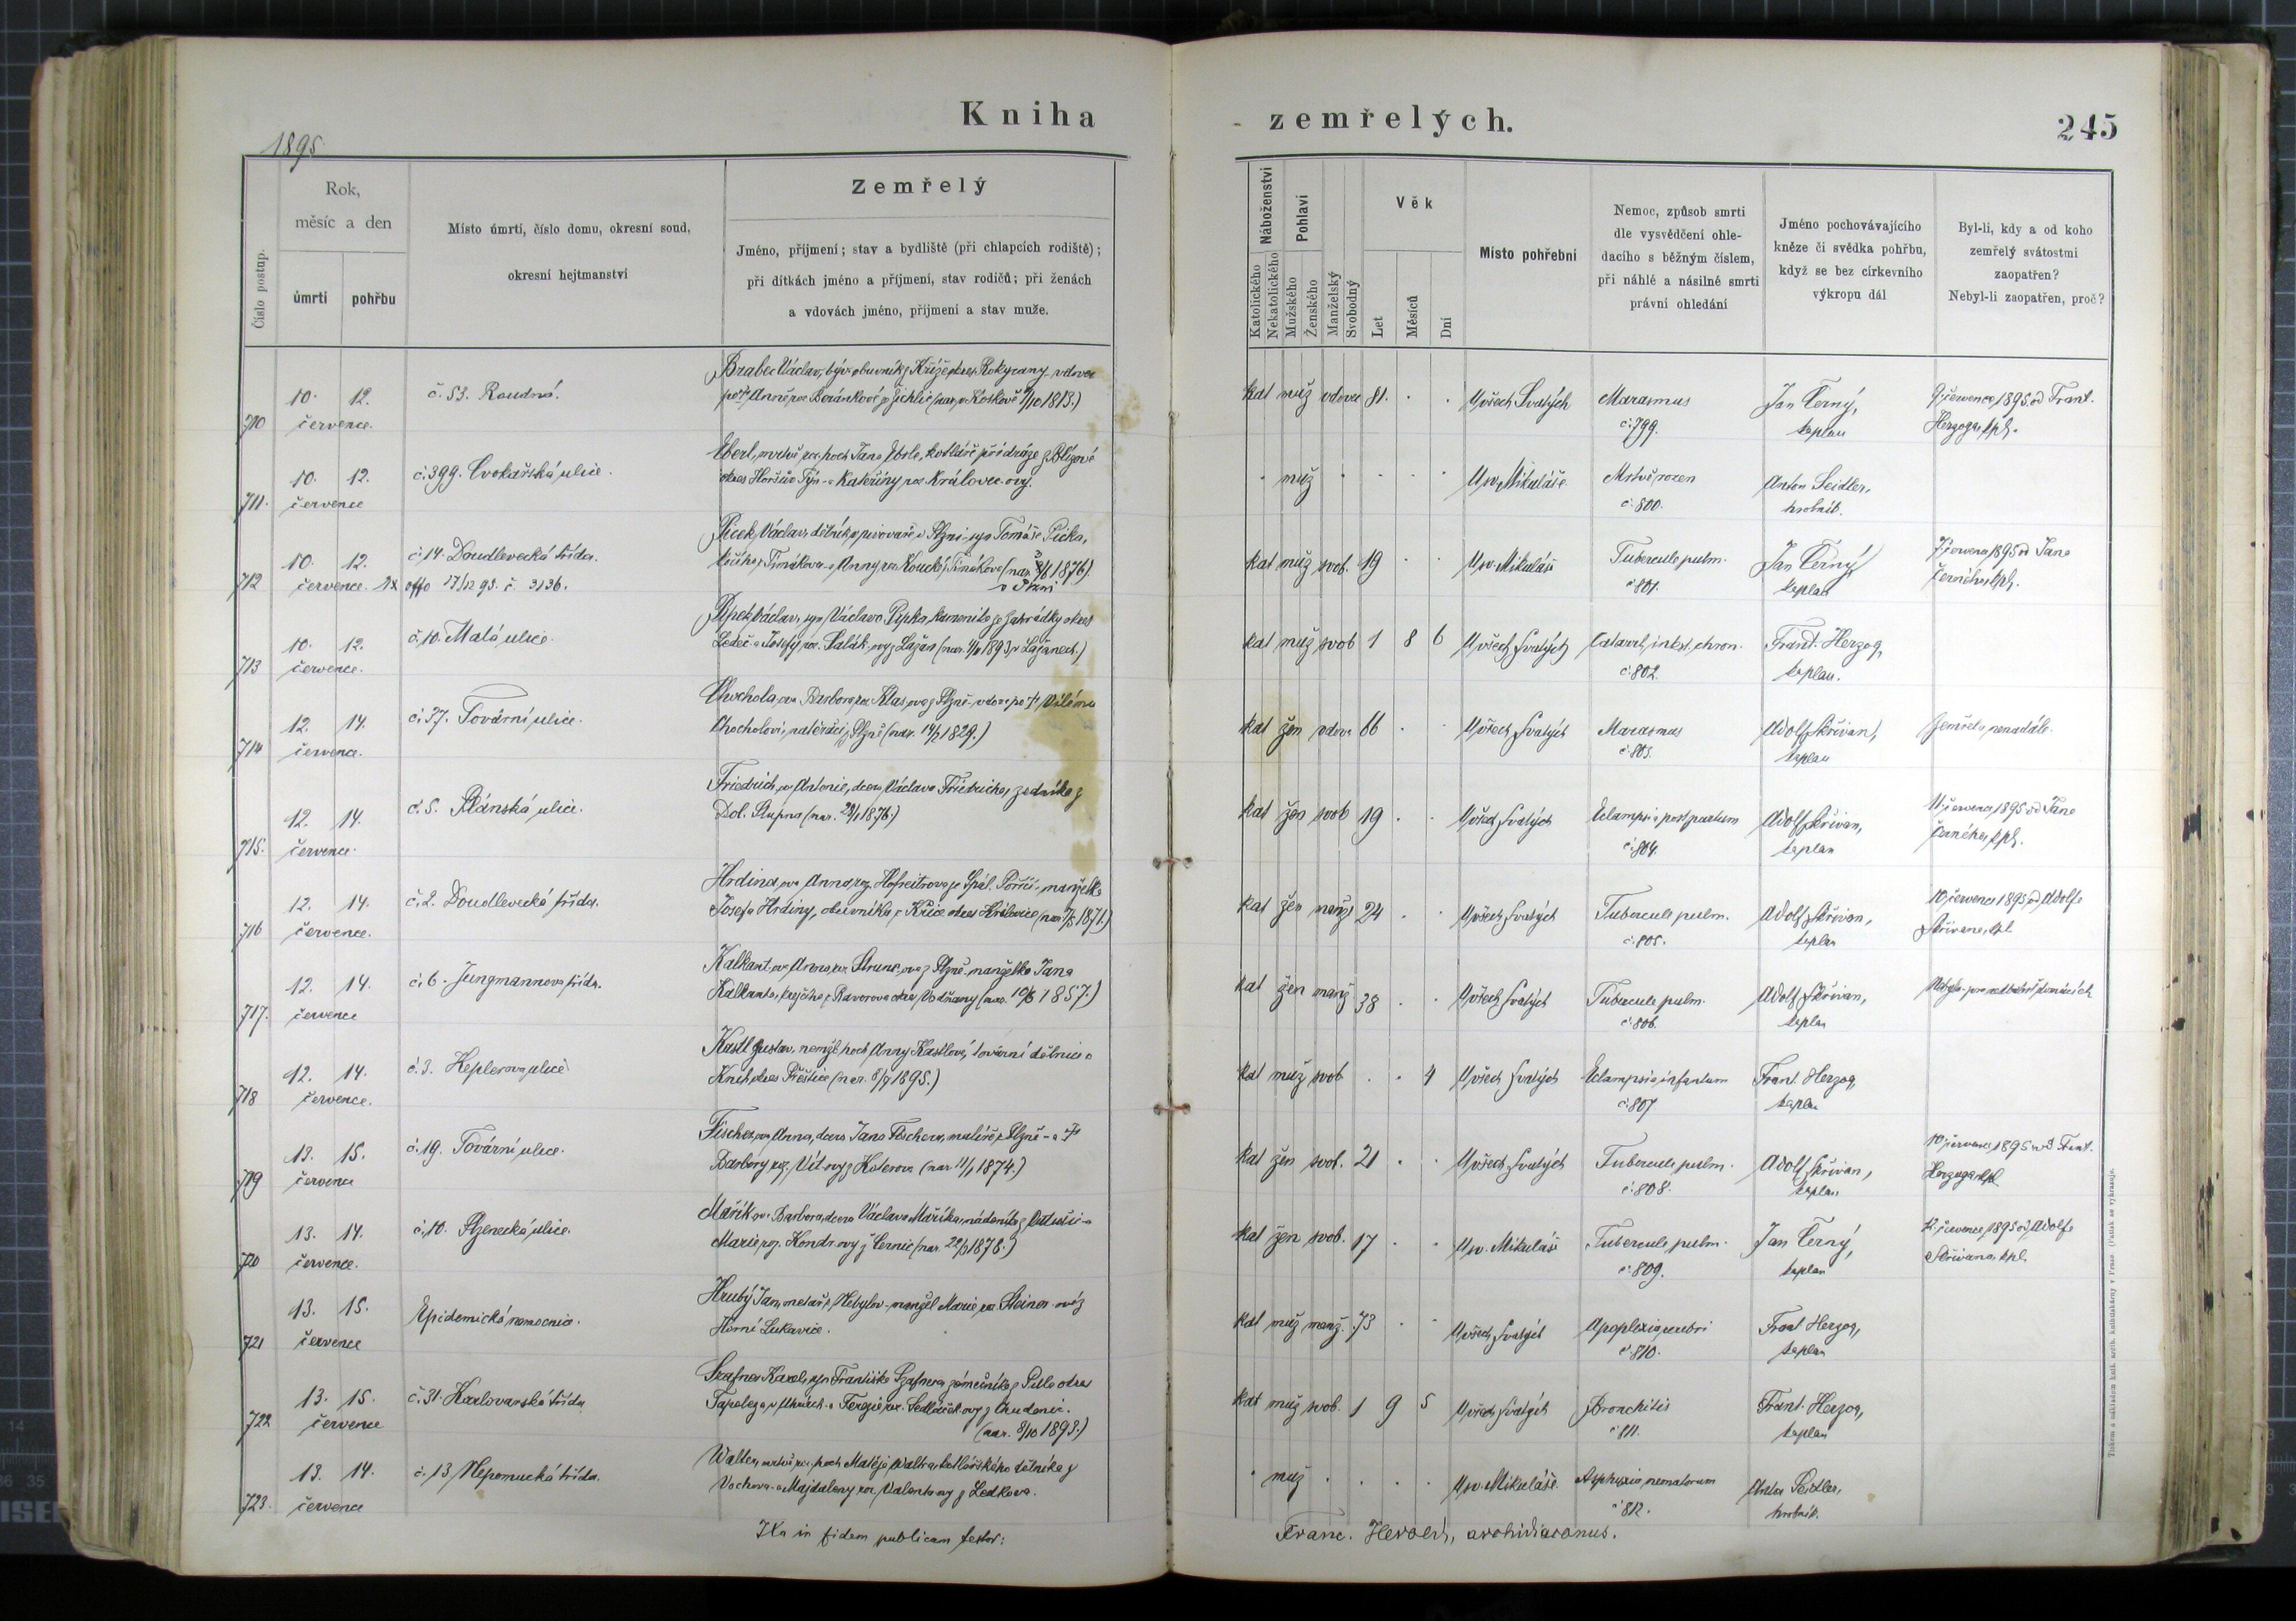 1895
Kniha
zemřelých.
245
Číslo postup.
Rok,
měsíc a den
úmrtí
pohřbu
Místo úmrtí, číslo domu, okresní soud,
okresní hejtmanství
Zemřelý
Jméno, příjmení; stav a bydliště (při chlapcích rodiště);
při dítkách jméno a příjmení, stav rodičů; při ženách
a vdovách jméno, přijmení a stav muže.
Náboženství
Katolického
Nekatolického
Pohlaví
Mužského
Ženského
Manželský
Svobodný
Věk
Let
Měsíců
Dní
Místo pohřební
Nemoc, způsob smrti
dle vysvědčení ohle-
dacího s běžným číslem,
při náhlé a násilné smrti
právní ohledání
Jméno pochovávajícího
kněze či svědka pohřbu,
když se bez církevního
výkropu dál
Byl-li, kdy a od koho
zemřelý svátostmi
zaopatřen?
Nebyl-li zaopatřen, proč?
710 10. 12. července. č. 53. Roudná.
Brabec Václav, býv. obuvník z Kříše okres Rokycany vdovec
po † Anně roz. Beránkové (nar. 1813.)
kat muž vdovec 81. U všech Svatých Marasmus č. 799. Jan Černý, kaplan 9. července 1895 od Frant.
Herzoga, kpl.
711. 10. 12. července č. 399. Cvokařská ulice.
Eberl, mrtvě roz. hoch Jana Eberle, kotláře při dráze z
okres Horšův Týn - a Kateřiny roz. Královec-ovy.
muž U sv. Mikuláše Mrtvě rozen č. 800. Anton Seidler, hrobník.
712 10. 12. července. č. 14. Doudlevecká třída.
Ex offo 17/12 93. č. 3136.
Picek, Václav, dělník v pivovaře v Plzni - syn Tomáše Picka,
z Timákova - a Anny roz. Koucké z Timákova (nar. 1876)
v Plzni
kat muž svob. 19 U sv. Mikuláše Tubercule pulm. č. 801. Jan Černý, kaplan 7. července 1895 od Jana
Černého, kpl.
713 10. 12. července. č. 10. Malá ulice.
Pipek, Václav, syn Václava Pipka, kameníka ze Zahrádky okres
Ledeč - a Josefy roz. Salák-ovy z Lažan (nar. 1893 v Lažanech.)
kat muž svob 1 8 6 U všech Svatých Catarrh. intest. chron. č. 802. Frant. Herzog, kaplan.
714 12. 14. července. č. 37. Tovární ulice.
Chochola, ova Barbora, roz. Klas, ova z Plzně - vdova po † Vilému
Chocholovi, natěrači z Plzně (nar. 14/2 1829.)
kat žen vdova 66 U všech Svatých Marasmus č. 803. Adolf Skřivan, kaplan Zemřela nenadále.
715. 12. 14. července. č. 5. Plánská ulice.
Friedrich, ova Antonie, dcera Václava Friedricha, zedníka z
Dol. Stupna (nar. 1876.)
kat žen svob 19 U všech Svatých Eclampsia post partum č. 804. Adolf Skřivan, kaplan 11. července 1895 od Jana
Černého, kpl.
716 12. 14. července. č. 2. Doudlevecká třída.
Hrdina, ova Anna, roz. Hofreitrova ze Spál. Poříčí - manželka
Josefa Hrdiny, obuvníka z Kříce okres Kralovice (nar. 1871.)
kat žen manž 24 U všech Svatých Tubercule pulm. č. 805. Adolf Skřivan, kaplan 10. července 1895 od Adolfa
Skřivana, kpl
717. 12. 14. července č. 6. Jungmannova třída.
Kalkant, ova Anna roz. Strunc, ova z Plzně - manželka Jana
Kalkanta, krejčího z Bavorova okres Vodňany (nar. 10/6 1857.)
kat žen manž 38 U všech Svatých Tubercule pulm. č. 806. Adolf Skřivan, kaplan Nebyla - pro nedbalost domácích
718 12. 14. července. č. 3. Keplerova ulice
Kastl Gustav, nemanž. hoch Anny Kastlové, tovární dělnice z
Knih okres Přeštice (nar. 8/7 1895.)
kat muž svob 4 U všech Svatých Eclampsia infantum č. 807 Frant. Herzog, kaplan
719 13. 15. července č. 19. Tovární ulice.
Fischer, ova Anna, dcera Jana Fischera, malíře z Plzně - a †
Barbory roz. Vít-ovy z Koterova (nar. 11/1 1874.)
kat žen svob. 21 U všech Svatých Tubercule pulm. č. 808. Adolf Skřivan, kaplan 10. července 1895 od Frant.
Herzoga, kpl.
720 13. 14. července. č. 10. Plzenecká ulice.
Mařík, ova Barbora, dcera Václava Maříka, nádeníka z
Marie roz. Kondr-ovy z Černic (nar. 1878.)
kat žen svob. 17 U sv. Mikuláše Tubercule pulm. č. 809. Jan Černý, kaplan 12. července 1895 od Adolfa
Skřivana, kpl.
721 13. 15. července Epidemická nemocnice.
Hrubý Jan, metař z Nebylov - manžel Marie roz. Steiner-ové z
Horní Lukavice.
kat muž manž. 73 U všech Svatých Apoplexia cerebri č. 810. Frant Herzog, kaplan
722. 13. 15. července č. 31. Karlovarská třída
Szafner Karel, syn Františka Szafnera, zámečníka z okres
Tapolcza v Uhrách - a Terezie roz. Sedláček-ovy z Chudenic.
(nar. 8/10 1893.)
kat muž svob. 1 9 5 U všech Svatých Bronchitis č. 811. Frant. Herzog, kaplan
723. 13. 14. července č. 13 Nepomucká třída.
Walter, mrtvě roz. hoch Matěje Waltra, kotlářského dělníka z
Vochova - a Majdaleny roz. Valenta-ovy z Ledkova.
muž U sv. Mikuláše Asphyxia neonatorum č. 812. Anton Seidler, hrobník.
Ita in fidem publicam testor:
Franc. Herold, archidiaconus.